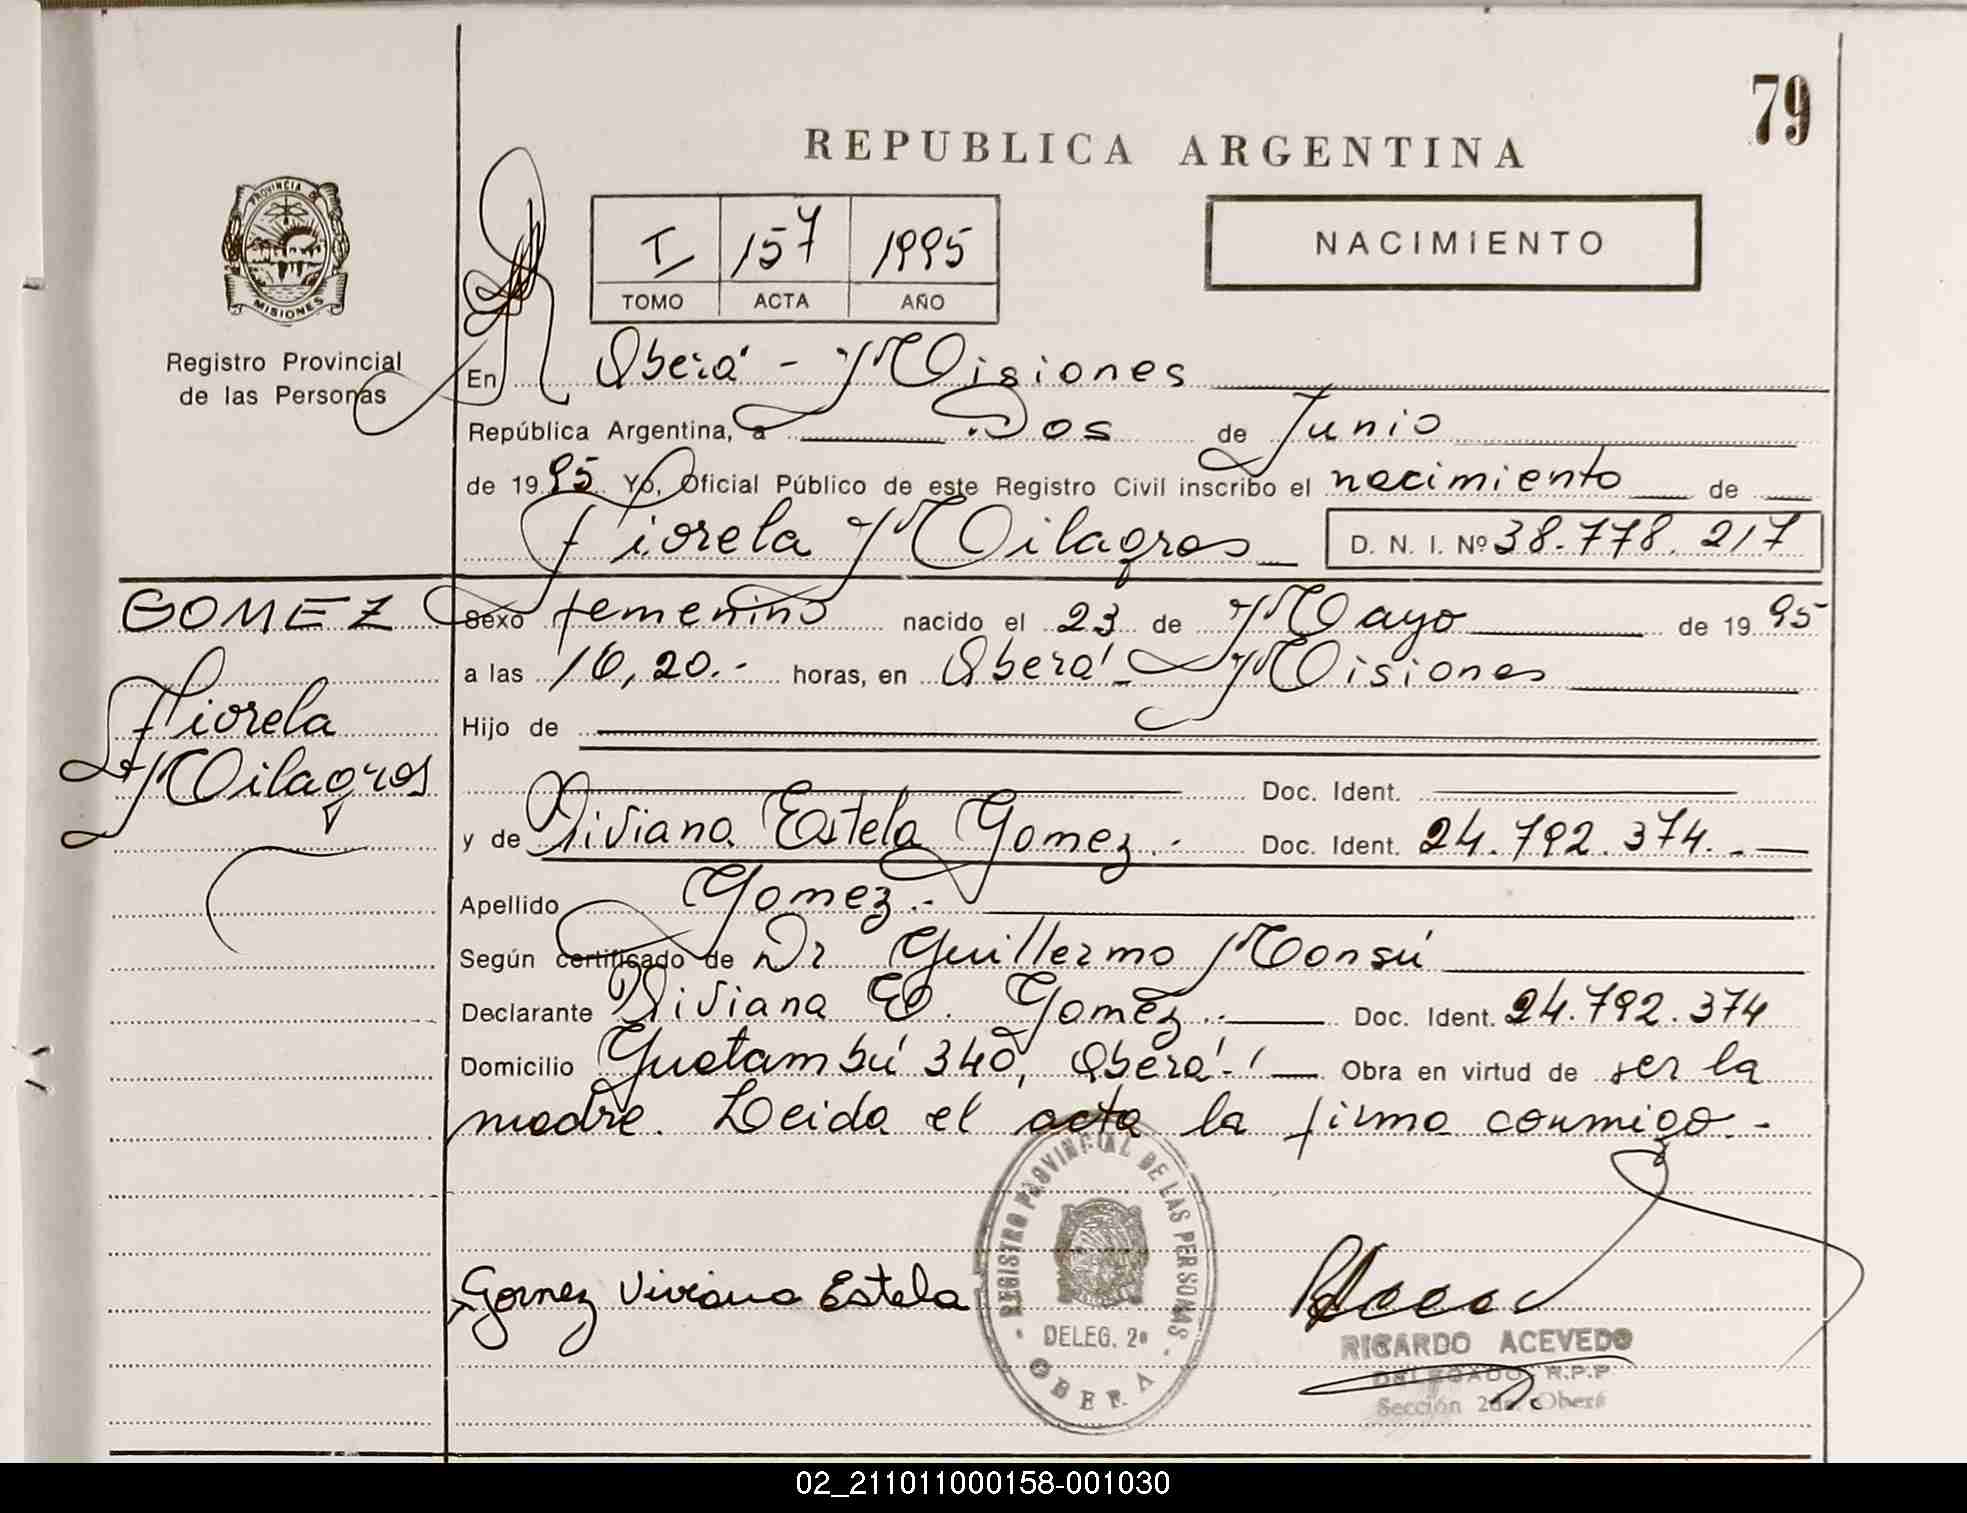 79
REPUBLICA ARGENTINA
PROVINCIA DE
MISIONES
Registro Provincial
de las Personas
I 157 1995
TOMO ACTA AÑO
NACIMIENTO
En Oberá - Misiones
República Argentina, a Dos de Junio
de 1995 Yo, Oficial Público de este Registro Civil inscribo el nacimiento de
Fiorela Milagros D. N. I. Nº 38.778.217
GOMEZ
Fiorela
Milagros
Sexo femenino nacido el 23 de Mayo de 1995
a las 16,20.- horas, en Oberá - Misiones
Hijo de
Doc. Ident.
y de Viviana Estela Gomez.- Doc. Ident. 24.792.374.-
Apellido Gomez.-
Según certificado de Dr Guillermo Monsú
Declarante Viviana E. Gomez.- Doc. Ident. 24.792.374
Domicilio Guatambú 340, Oberá.- Obra en virtud de ser la
madre. Leida el acta la firma conmigo.-
Gomez Viviana Estela
REGISTRO PROVINCIAL DE LAS PERSONAS
DELEG. 2ª
OBERA
RICARDO ACEVEDO
DELEGADO R.P.P.
Sección 2da. Oberá
02_211011000158-001030